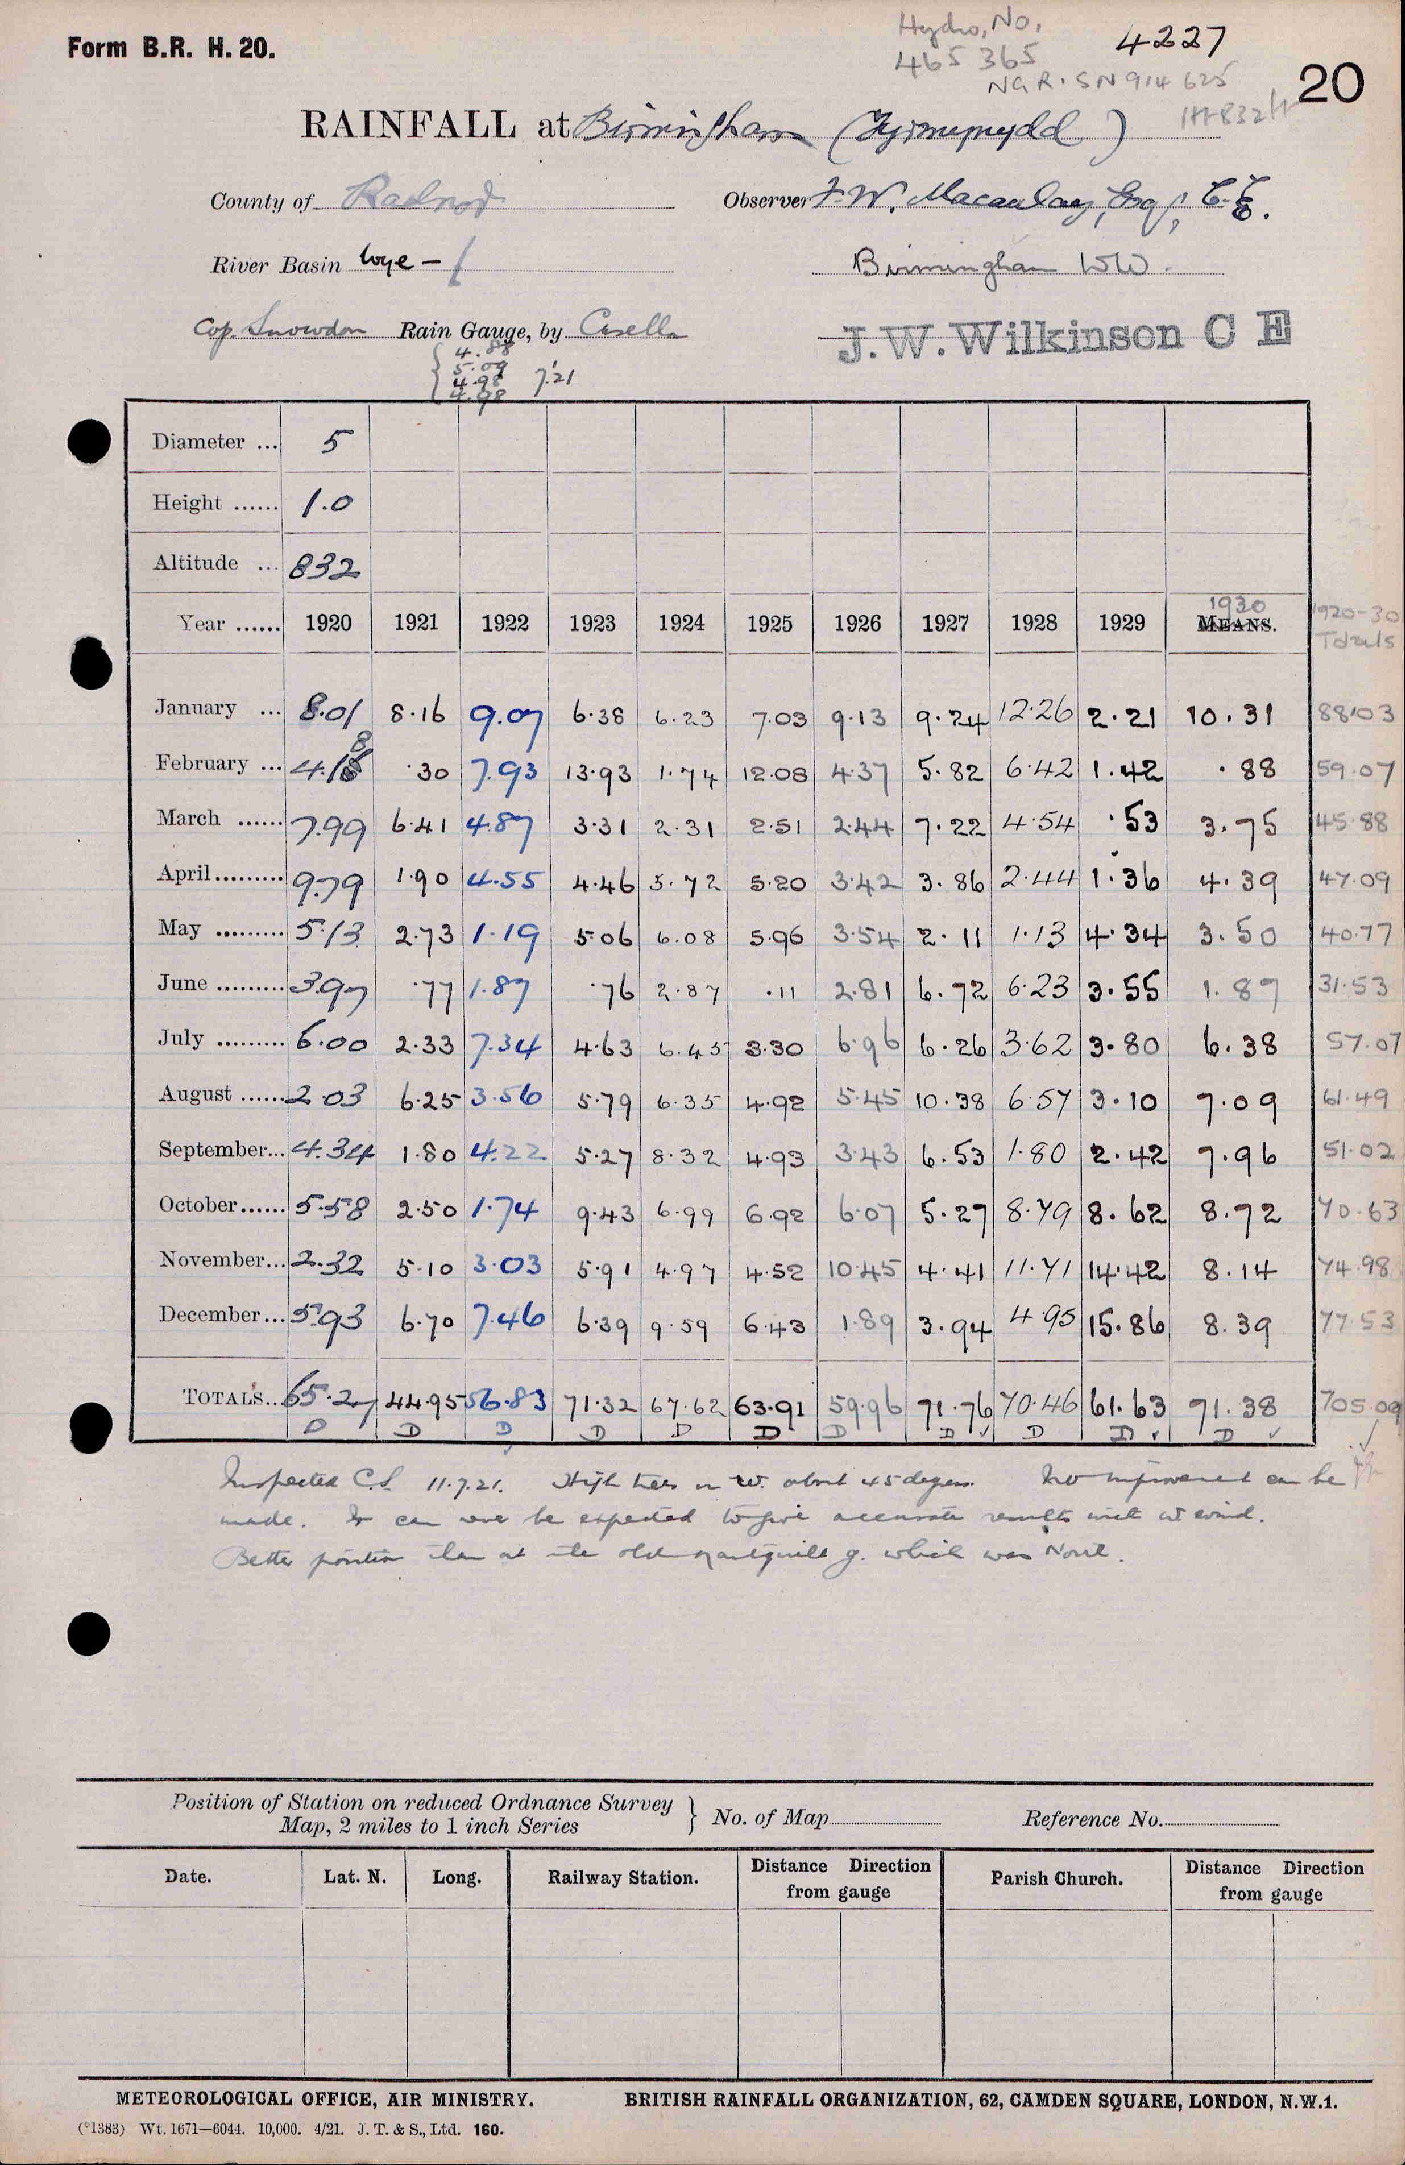 Form B.R. H. 20.
Hydro, No.
465 365
4227
NGR. SN 914 625
20
RAINFALL at Birmingham (Tyrmynydd)
County of Radnor
Observer F. W. Macaulay, Esq., C.E.
River Basin Wye –
Birmingham WW.
Cop. Snowdon Rain Gauge, by Casella
J. W. Wilkinson C E
4.88
5.09
4.98 7.21
4.98
Diameter ... 5
Height ...... 1.0
Altitude ... 832
Year ...... 1920 1921 1922 1923 1924 1925 1926 1927 1928 1929 MEANS. 1930 1920-30 Totals
January ... 8.01 8.16 9.07 6.38 6.23 7.03 9.13 9.24 12.26 2.21 10.31 88.03
February ... 4.18 .30 7.93 13.93 1.74 12.08 4.37 5.82 6.42 1.42 .88 59.07
March ...... 7.99 6.41 4.87 3.31 2.31 2.51 2.44 7.22 4.54 .53 3.75 45.88
April ......... 9.79 1.90 4.55 4.46 5.72 5.20 3.42 3.86 2.44 1.36 4.39 47.09
May ......... 5.13 2.73 1.19 5.06 6.08 5.96 3.54 2.11 1.13 4.34 3.50 40.77
June ......... 3.97 .77 1.87 .76 2.87 .11 2.81 6.72 6.23 3.55 1.87 31.53
July ......... 6.00 2.33 7.34 4.63 6.45 3.30 6.96 6.26 3.62 3.80 6.38 57.07
August ...... 2.03 6.25 3.56 5.79 6.35 4.92 5.45 10.38 6.57 3.10 7.09 61.49
September... 4.34 1.80 4.22 5.27 8.32 4.93 3.43 6.53 1.80 2.42 7.96 51.02
October...... 5.58 2.50 1.74 9.43 6.99 6.92 6.07 5.27 8.79 8.62 8.72 70.63
November... 2.32 5.10 3.03 5.91 4.97 4.52 10.45 4.41 11.71 14.42 8.14 74.98
December... 5.93 6.70 7.46 6.39 9.59 6.43 1.89 3.94 4.95 15.86 8.39 77.53
TOTALS... 65.27 44.95 56.83 71.32 67.62 63.91 59.96 71.76 70.46 61.63 71.38 705.09
D D D D D D D D D D D
Inspected C.S. 11.7.21. High trees in W. about 45 degrees. No improvement can be
made. It can never be expected to give accurate results with W wind.
Better position than at the old g. which was North.
Position of Station on reduced Ordnance Survey
Map, 2 miles to 1 inch Series } No. of Map Reference No.
Date. Lat. N. Long. Railway Station. Distance Direction from gauge Parish Church. Distance Direction from gauge
METEOROLOGICAL OFFICE, AIR MINISTRY. BRITISH RAINFALL ORGANIZATION, 62, CAMDEN SQUARE, LONDON, N.W.1.
(*1383) Wt. 1671—6044. 10,000. 4/21. J. T. & S., Ltd. 160.